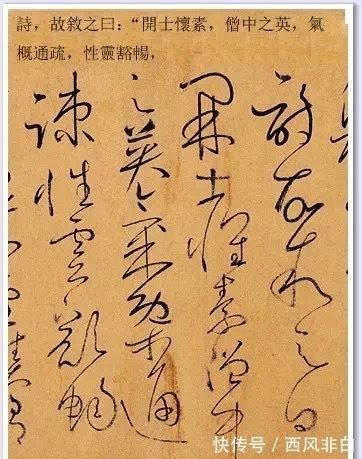 詩，故敘之曰：“開士懷素，僧中之英，氣
概通疏，性靈豁暢，
詩故敘之曰
開士懷素僧中
之英氣槩通
疎性靈豁暢
快传号／西风非白